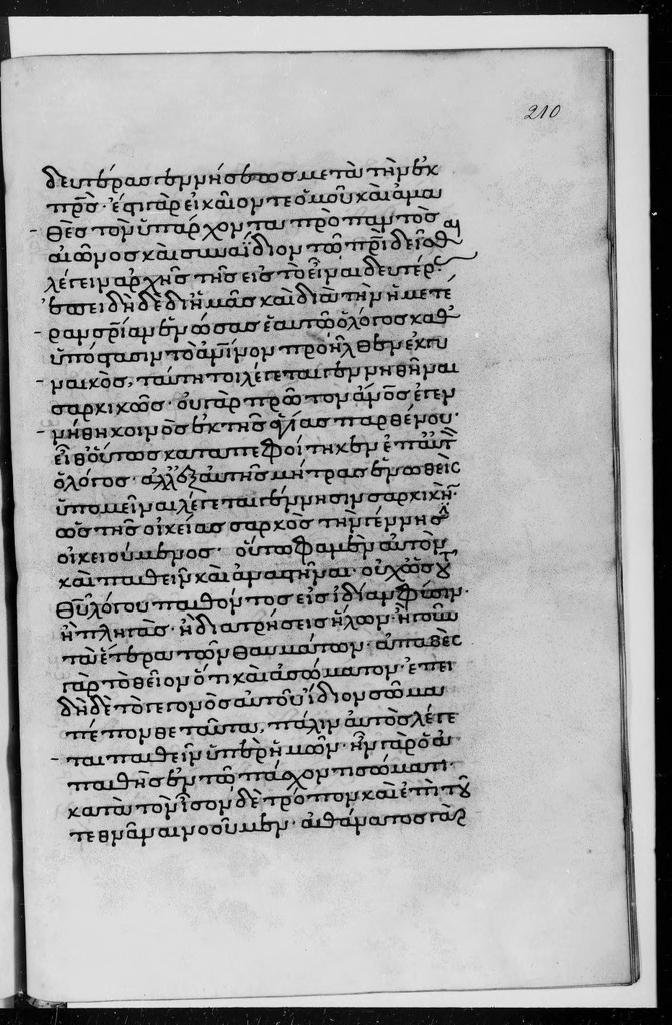 δευτέρας γεννήσεως μετὰ τὴν ἐκ
πρ̅ς· ἔστι γὰρ εἰκαῖον τε ὁμοῦ καὶ ἀμα
θὲς τὸν ὑπάρχοντα πρὸ παντὸς
αἰῶνος καὶ συναΐδιον τῶ πρ̅ι δεῖσθαι
λέγειν ἀρχῆς τῆς εἰς τὸ εἶναι δευτέρ·
ἐπειδὴ δὲ δι' ἡμᾶς καὶ διὰ τὴν ἡμετέ
ραν σρ̅ίαν ἑνώσας ἑαυτῶ ὁ λόγος καθ'
ὑπόστασιν τὸ ἀν̅ινον προῆλθεν ἐκ γυ
ναικὸς, ταύτη τοι λέγεται γεννηθῆναι
σαρκικῶς· οὐ γὰρ πρῶτον ἀν̅ος ἐγεν
νήθη κοινὸς ἐκ τῆς ἁγίας παρθένου·
εἶθ' οὕτως καταπεφοίτηκεν ἐπ' αὐτ
ὁ λόγος· ἀλλ' ἐξ αὐτῆς μήτρας ἑνωθεὶς
ὑπομεῖναι λέγεται γέννησιν σαρκικὴν·
ὡς τῆς οἰκείας σαρκὸς τὴν γέννησιν
οἰκειούμενος· οὕτω φαμὲν αὐτὸν
καὶ παθεῖν καὶ ἀναστῆναι· οὐχ ὡς τοῦ
θυ̅ λόγου παθόντος εἰς ἰδίαν φύσιν·
ἢ πληγὰς· ἢ διατρήσεις ἥλων· ἤγουν
τὰ ἕτερα τῶν θαυμάτων· ἀπαθὲς
γὰρ τὸ θεῖον ὅτι καὶ ἀσώματον· ἐπει
δὴ δὲ τὸ γεγονὸς αὐτοῦ ἴδιον σῶμα
πέπονθε ταῦτα, πάλιν αὐτὸς λέγε
ται παθεῖν ὑπὲρ ἡμῶν· ἦν γὰρ ὁ ἀ
παθὴς ἐν τῶ πάσχοντι σώματι·
κατὰ τὸν ἴσον δὲ τρόπον καὶ ἐπὶ τοῦ
τεθνάναι νοοῦμεν· ἀθάνατος γὰρ
210